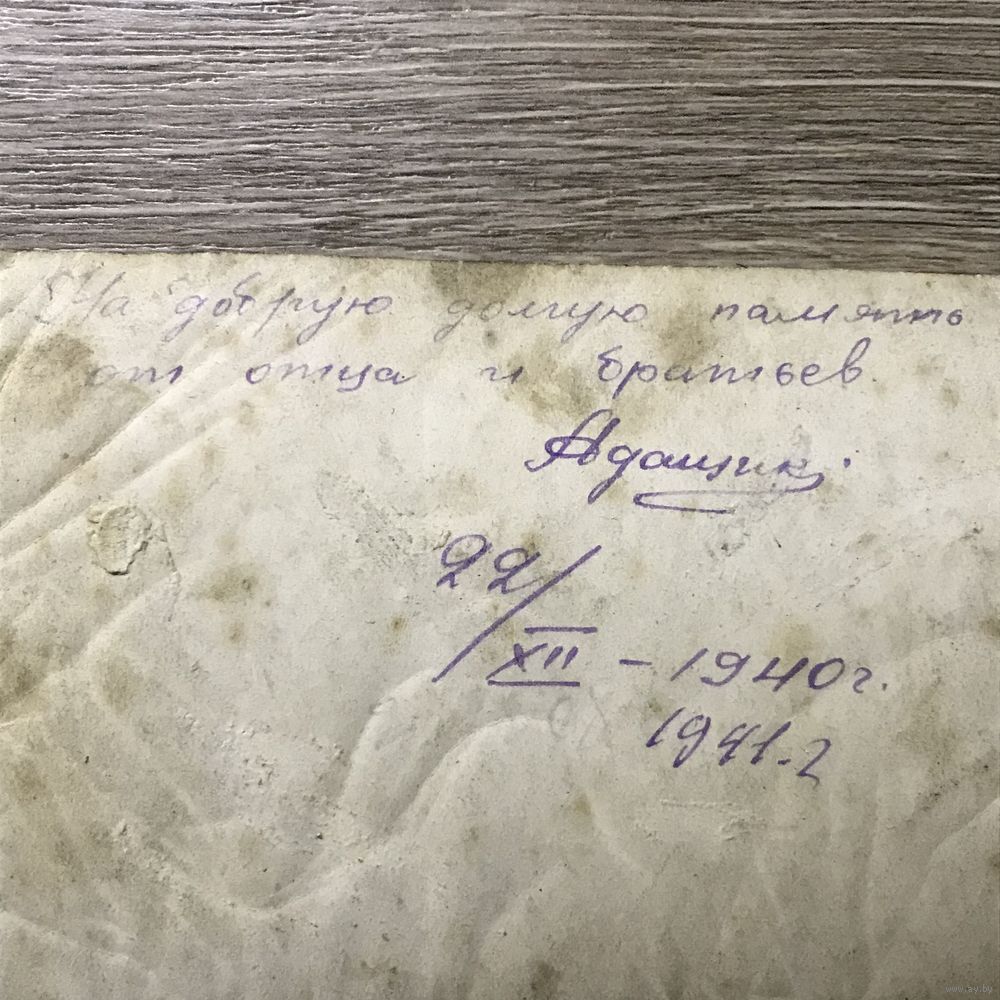 На добрую долгую память
от отца и братьев
Адащик
22/XII – 1940г.
1941.г
www.ay.by